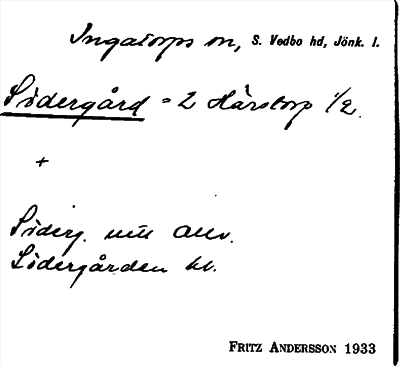 Ingatorps sn, S. Vedbo hd, Jönk. l.
Södergård = 2 Hårstorp 1/2.
+
Söderg. utt
Södergården kl.
FRITZ ANDERSSON 1933